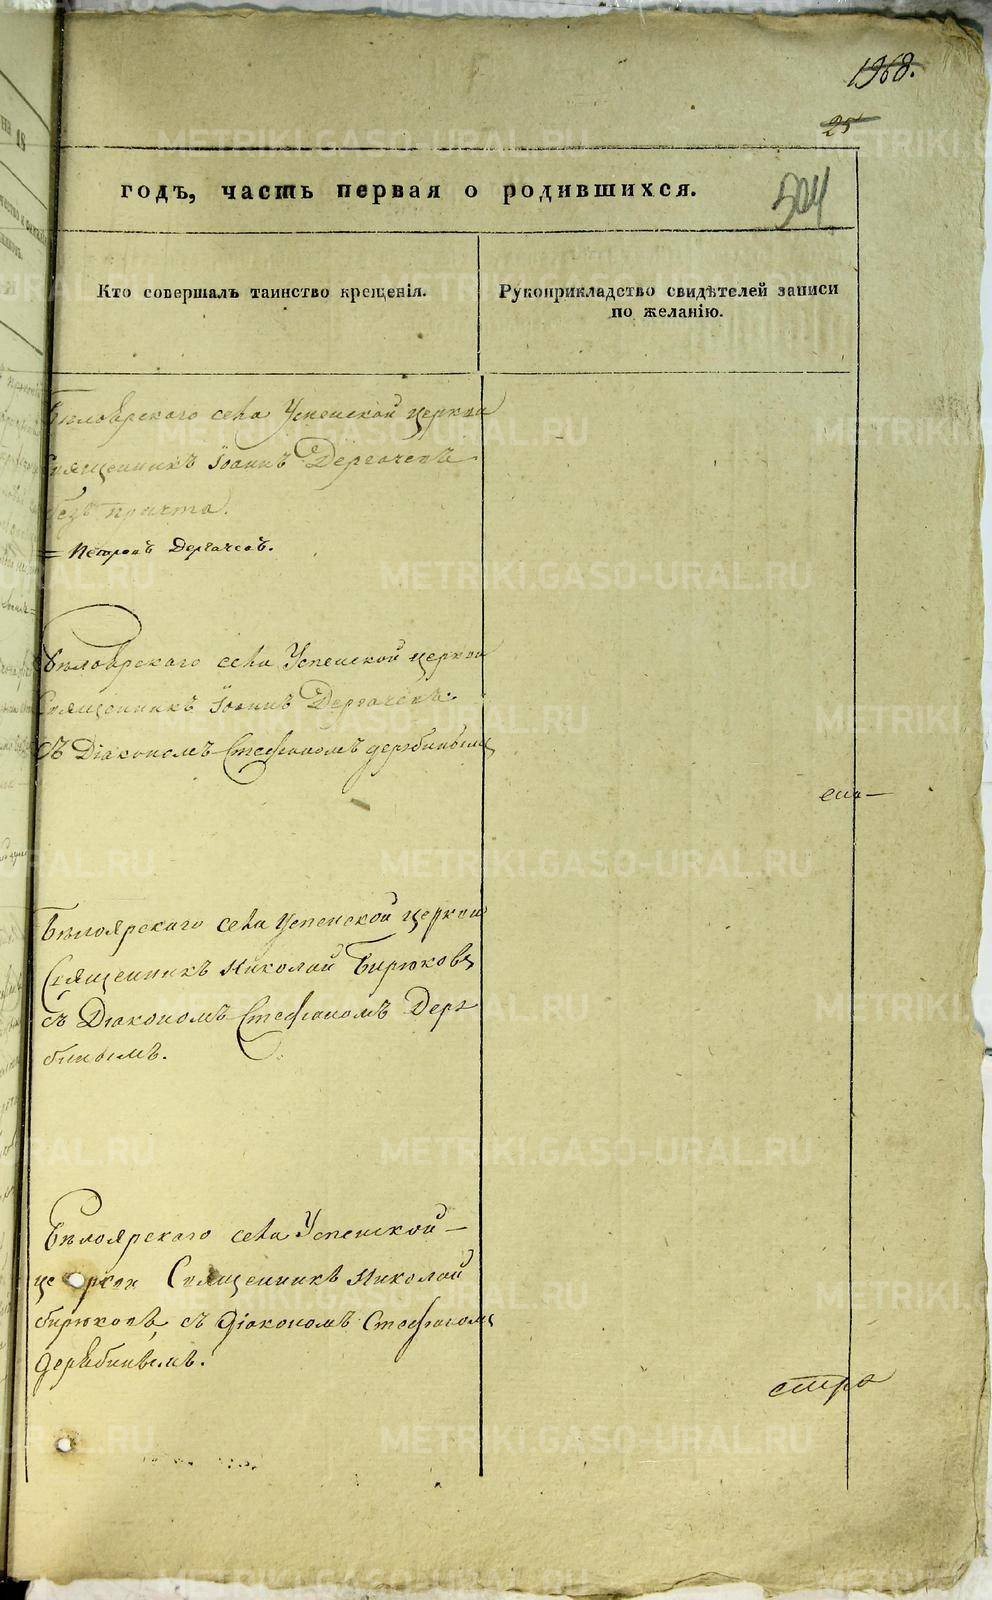 1968.
25
годъ, часть первая о родившихся.
504
Кто совершалъ таинство крещенія.
Рукоприкладство свидѣтелей записи
по желанію.
Бѣлоярскаго села Успенской церкви
Священникъ Іоаннъ Дергачевъ
безъ причта.
= Петромъ Дергачевъ.
Бѣлоярскаго села Успенской церкви
Священникъ Іоаннъ Дергачевъ
съ Діакономъ Стефаномъ дерябинымъ
Бѣлоярскаго села Успенской церкви
Священникъ Николай Бирюковъ
съ Діакономъ Стефаномъ Деря
бинымъ.
Бѣлоярскаго села Успенской –
церкви Священникъ Николай
бирюковъ, съ Діакономъ Стефаномъ
дерябинымъ.
METRIKI.GASO-URAL.RU